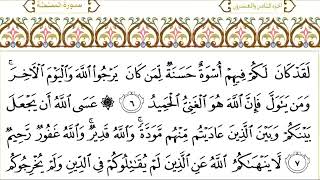 الجزء الثامن والعشرون سورة الممتحنة
لَقَدْ كَانَ لَكُمْ فِيهِمْ أُسْوَةٌ حَسَنَةٌ لِّمَن كَانَ يَرْجُوا۟ ٱللَّهَ وَٱلْيَوْمَ ٱلْـَٔاخِرَ ۚ
وَمَن يَتَوَلَّ فَإِنَّ ٱللَّهَ هُوَ ٱلْغَنِىُّ ٱلْحَمِيدُ ٦ ۞ عَسَى ٱللَّهُ أَن يَجْعَلَ
بَيْنَكُمْ وَبَيْنَ ٱلَّذِينَ عَادَيْتُم مِّنْهُم مَّوَدَّةً ۚ وَٱللَّهُ قَدِيرٌ ۚ وَٱللَّهُ غَفُورٌ رَّحِيمٌ
٧ لَّا يَنْهَىٰكُمُ ٱللَّهُ عَنِ ٱلَّذِينَ لَمْ يُقَـٰتِلُوكُمْ فِى ٱلدِّينِ وَلَمْ يُخْرِجُوكُم